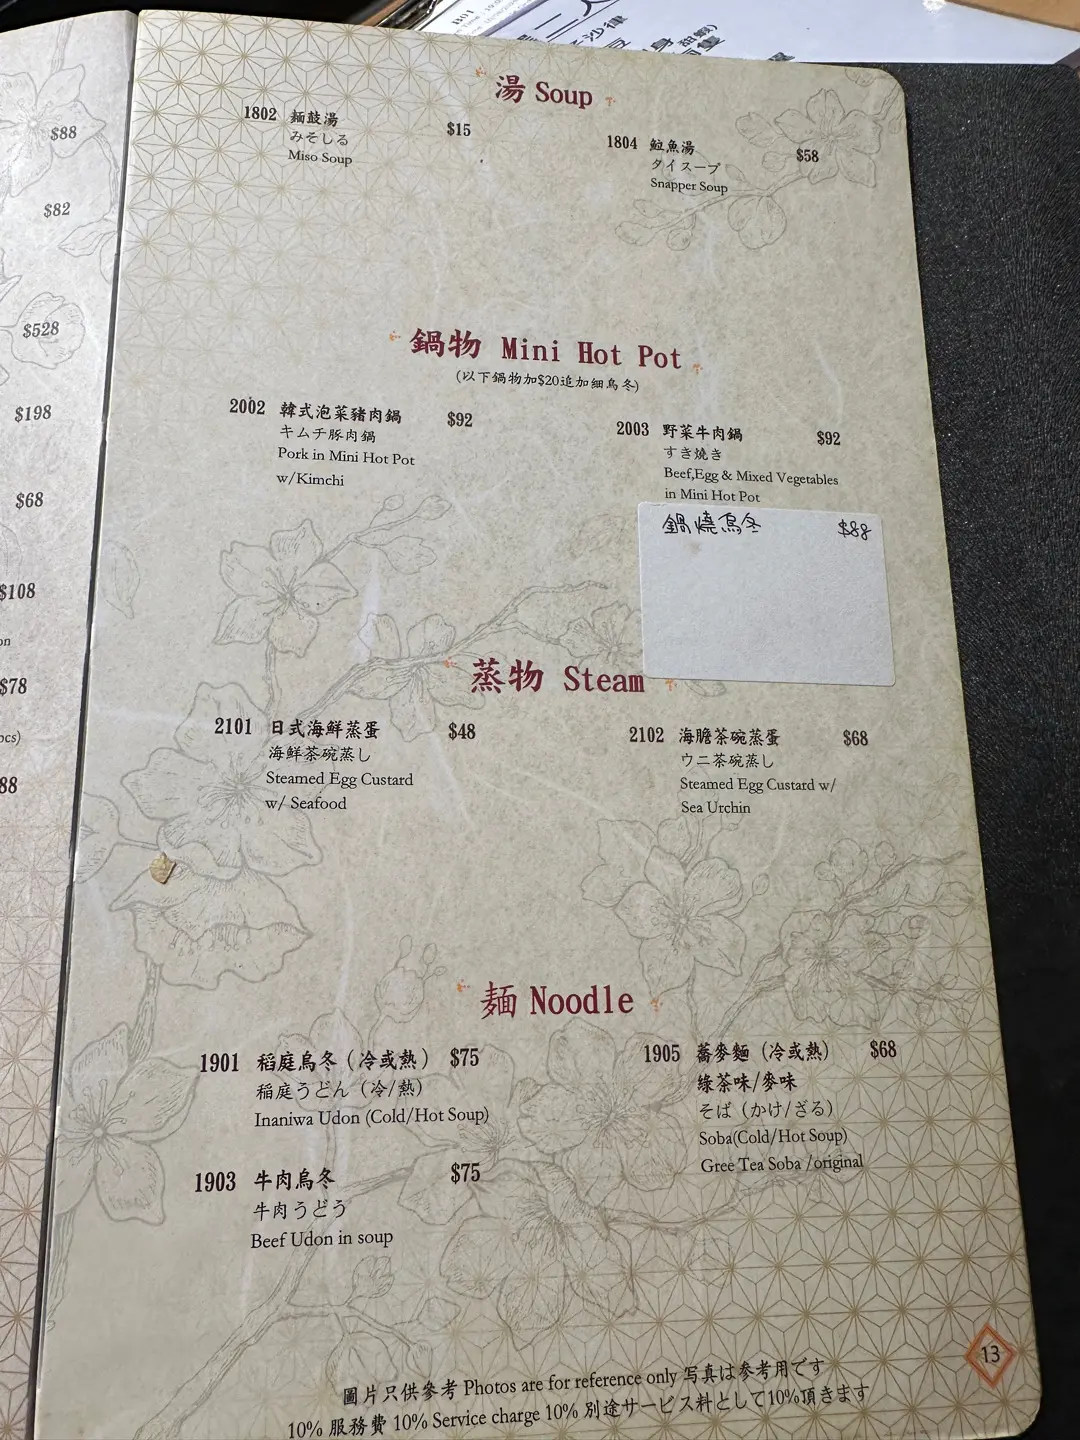 $88
$82
$528
$198
$68
$108
on
$78
pcs)
88
二人
沙律
湯 Soup
1802 麵鼓湯 $15
みそしる
Miso Soup
1804 䱽魚湯 $58
タイスープ
Snapper Soup
鍋物 Mini Hot Pot
(以下鍋物加$20追加細烏冬)
2002 韓式泡菜豬肉鍋 $92
キムチ豚肉鍋
Pork in Mini Hot Pot
w/Kimchi
2003 野菜牛肉鍋 $92
すき燒き
Beef,Egg & Mixed Vegetables
in Mini Hot Pot
鍋燒烏冬 $88
蒸物 Steam
2101 日式海鮮蒸蛋 $48
海鮮茶碗蒸し
Steamed Egg Custard
w/ Seafood
2102 海膽茶碗蒸蛋 $68
ウニ茶碗蒸し
Steamed Egg Custard w/
Sea Urchin
麺 Noodle
1901 稻庭烏冬（冷或熱） $75
稲庭うどん（冷/熱）
Inaniwa Udon (Cold/Hot Soup)
1903 牛肉烏冬 $75
牛肉うどう
Beef Udon in soup
1905 蕎麥麵（冷或熱） $68
綠茶味/麥味
そば（かけ/ざる）
Soba(Cold/Hot Soup)
Gree Tea Soba /original
13
圖片只供參考 Photos are for reference only 写真は参考用です
10% 服務費 10% Service charge 10% 別途サービス料として10%頂きます